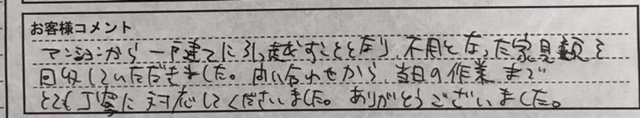 お客様コメント
マンションから一戸建てに引っ越すこととなり、不用となった家具類を
回収していただきました。問い合わせから、当日の作業まで
とても丁寧に対応してくださいました。ありがとうございました。